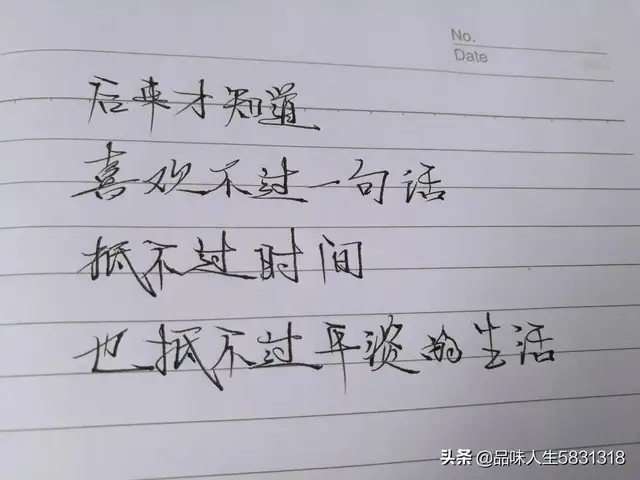 No.
Date
后来才知道
喜欢不过一句话
抵不过时间
也抵不过平淡的生活
头条 @品味人生5831318